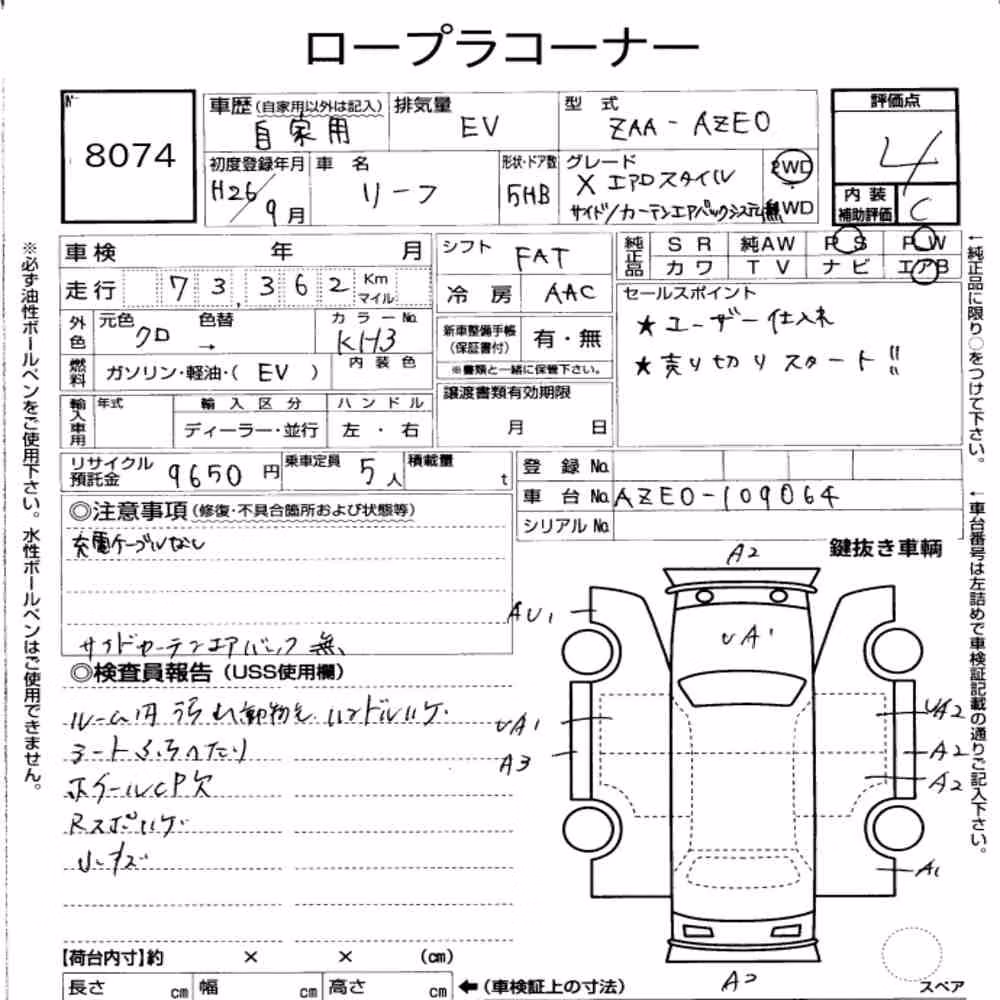 ロープラコーナー
No.
8074
車歴(自家用以外は記入)
自家用
排気量
EV
型式
ZAA-AZEO
評価点
4
初度登録年月
H26/9月
車名
リーフ
形状・ドア数
5HB
グレード
X エアロスタイル
サイド/カーテンエアバックシステム無
2WD
4WD
内装
補助評価
C
車検 年 月
走行 73,362 Km
マイル
シフト
FAT
冷房
AAC
純正品
SR 純AW PS PW
カワ TV ナビ エアB
外色
元色
クロ
色替
→
カラーNo.
KH3
内装色
新車整備手帳
(保証書付)
有・無
※書類と一緒に保管下さい。
セールスポイント
★ ユーザー仕入れ
★ 売り切りスタート!!
燃料
ガソリン・軽油・( EV )
輸入車用
年式
輸入区分
ハンドル
ディーラー・並行
左・右
譲渡書類有効期限
月 日
リサイクル
預託金
9650円
乗車定員
5人
積載量
t
登録No.
車台No. AZEO-109064
シリアルNo.
◎注意事項(修復・不具合箇所および状態等)
充電ケーブルなし
サイドカーテンエアバック無
鍵抜き車輌
◎検査員報告(USS使用欄)
ルーム内 汚れ動物毛 ハンドルハゲ
シートふちへたり
ホイールCP欠
Rスポハゲ
A2
AU1
UA1
UA1
A3
UA2
A2
A2
A1
A2
【荷台内寸】約 × × (cm)
長さ cm 幅 cm 高さ cm
←(車検証上の寸法)
スペア
※必ず油性ボールペンをご使用下さい。水性ボールペンはご使用できません。
←純正品に限り○をつけて下さい。
←車台番号は左詰めで車検証記載の通りご記入下さい。